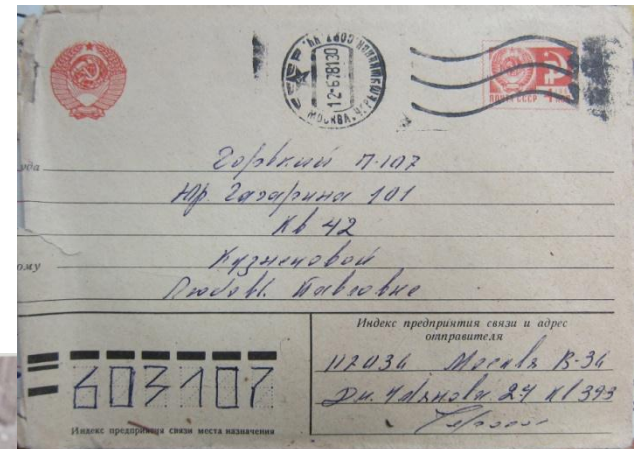 МОСКВА
12-678130
ПОЧТА СССР
куда
Горький П-107
пр. Гагарина 101
кв 42
кому
Кузнецовой
Любовь Павловне
Индекс предприятия связи и адрес
отправителя
117036 Москва В-36
Дм. Ульянова 24 кв 393
603107
Индекс предприятия связи места назначения